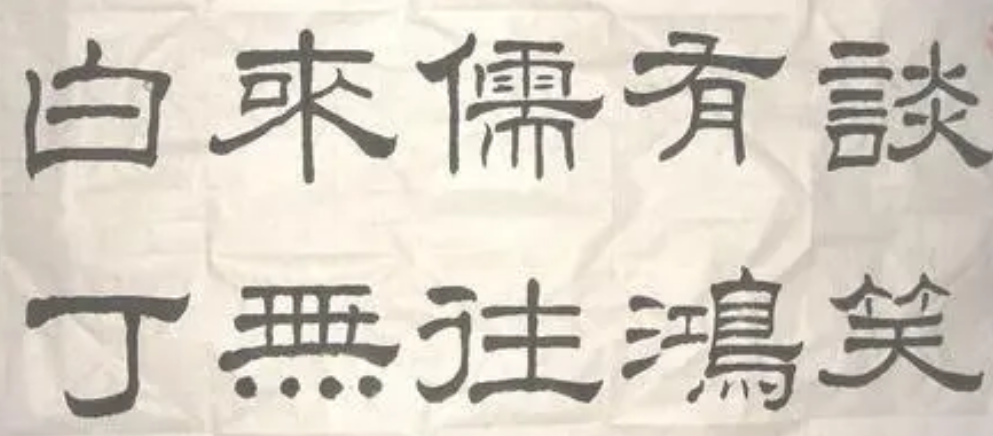 談笑
有鴻
儒往
來無
白丁